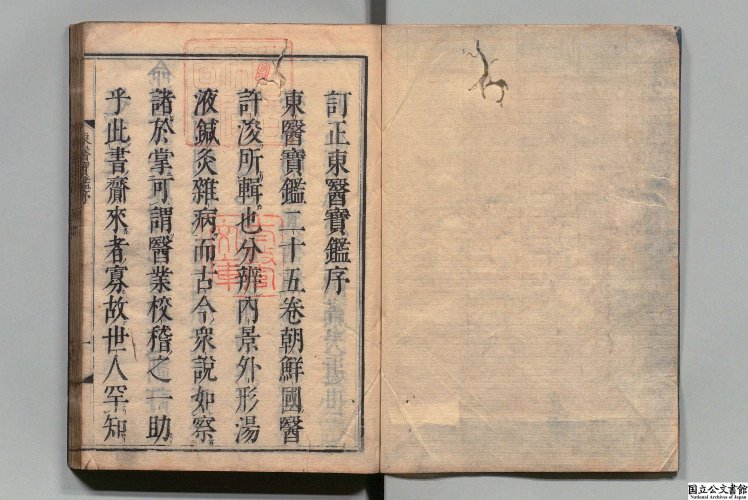 訂正東醫寶鑑序
東醫寶鑑二十五卷朝鮮國醫
許浚所輯也分辨內景外形湯
液鍼灸雜病而古今衆說如察
諸於掌可謂醫業校稽之一助
乎此書齎來者寡故世人罕知
東醫寶鑑序
国立公文書館
National Archives of Japan